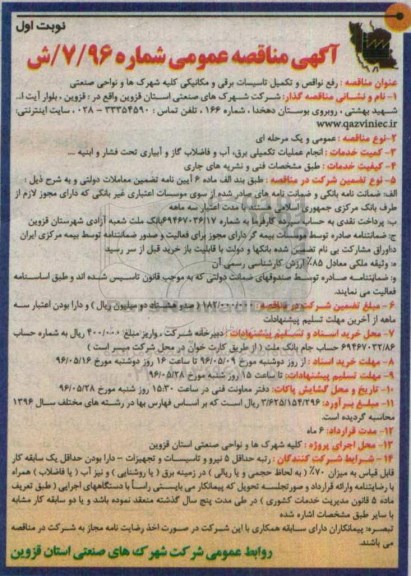 نوبت اول
آگهی مناقصه عمومی شماره ۷/۹۶/ش
عنوان مناقصه : رفع نواقص و تکمیل تاسیسات برقی و مکانیکی کلیه شهرک ها و نواحی صنعتی
۱- نام و نشانی مناقصه گذار: شرکت شهرک های صنعتی استان قزوین واقع در : قزوین ، بلوار آیت ا..
شهید بهشتی ، روبروی بوستان دهخدا ، شماره ۱۶۶ ، تلفن تماس : ۳۳۳۵۴۵۹۰ - ۰۲۸ ، سایت اینترنتی:
www.qazviniec.ir
۲-نوع مناقصه : عمومی و یک مرحله ای
۳- کمیت خدمات : انجام عملیات تکمیلی برق، آب و فاضلاب گاز و آبیاری تحت فشار و ابنیه ...
۴- کیفیت خدمات : طبق مشخصات فنی و نشریه های جاری
۵- نوع تضمین شرکت در مناقصه : طبق بند الف ماده ۶ آیین نامه تضمین معاملات دولتی و به شرح ذیل :
الف: ضمانت نامه بانکی و ضمانت نامه های صادر شده از سوی موسسات اعتباری غیر بانکی که دارای مجوز لازم از
طرف بانک مرکزی جمهوری اسلامی هستند با مدت اعتبار سه ماهه
ب: پرداخت نقدی به حساب سپرده کارفرما به شماره ۶۹۴۶۷۰۳۶۱۷ بانک ملت شعبه آزادی شهرستان قزوین
ج: ضمانتنامه صادره توسط شرکت بیمه گر دارای مجوز برای فعالیت و صدور ضمانتنامه توسط بیمه مرکزی ایران
د: اوراق مشارکت بی نام تضمین شده بانکها و دولت با قابلیت باز خرید قبل از سر رسید
ه: وثیقه ملکی معادل ۸۵٪ ارزش کارشناسی رسمی آن
و: ضمانتنامه صادره توسط صندوقهای ضمانت دولتی که به موجب قانون تاسیس شده اند و طبق اساسنامه
فعالیت می نمایند.
۶ - مبلغ تضمین شرکت در مناقصه : (صد هشتاد دو میلیون ریال) و دارا بودن اعتبار سه
ماهه از آخرین مهلت تسلیم پیشنهادات
۷- محل خرید اسناد و تسلیم پیشنهادات: دبیرخانه شرکت ، واریز مبلغ ۴۰۰/۰۰۰ ریال به شماره حساب
۶۹۴۶۷۰۳۳/۸۶ حساب جام بانک ملت ( از طریق کارت خوان در محل شرکت میسر است )
۸- مهلت خرید اسناد : از روز دوشنبه مورخ ۹۶/۰۵/۰۹ تا ساعت ۱۶ روز دوشنبه مورخ ۹۶/۰۵/۱۶
۹- مهلت تسلیم پیشنهادات: تا ساعت ۱۵ روز شنبه مورخ ۹۶/۰۵/۲۸
۱۰- تاریخ و محل گشایش پاکات: دفتر معاونت فنی در ساعت ۱۵.۳۰ روز شنبه مورخ ۹۶/۰۵/۲۸
۱۱- مبلغ برآورد: ۳/۶۲۵/۱۵۴/۲۹۶ ریال است که بر اساس فهارس بها در رشته های مختلف سال ۱۳۹۶
محاسبه گردیده است.
۱۲- مدت قرارداد: ۶ ماه
۱۳- محل اجرای پروژه : کلیه شهرک ها و نواحی صنعتی استان قزوین
۱۴- شرایط شرکت کنندگان : رتبه حداقل ۵ نیرو و تاسیسات و تجهیزات - دارا بودن حداقل یک سابقه کار
قابل قیاس به میزان ۷۰٪ ( به لحاظ حجمی و یا ریالی ) در زمینه برق ( یا روشنایی ) و نیز آب ( یا فاضلاب ) همراه
با رضایتنامه وارائه قرارداد و صورتجلسه تحویل که پیمانکار می بایستی راسا با دستگاههای اجرایی ( طبق تعریف
ماده ۵ قانون مدیریت خدمات کشوری ) در طی مدت پنج سال گذشته منعقد نموده باشد و یا دو سابقه کار مشابه
با سایر طبق مشخصات اشاره شده
تبصره: پیمانکاران دارای سابقه همکاری با این شرکت در صورت اخذ رضایت نامه مجاز به شرکت در مناقصه
می باشند.
روابط عمومی شرکت شهرک های صنعتی استان قزوین